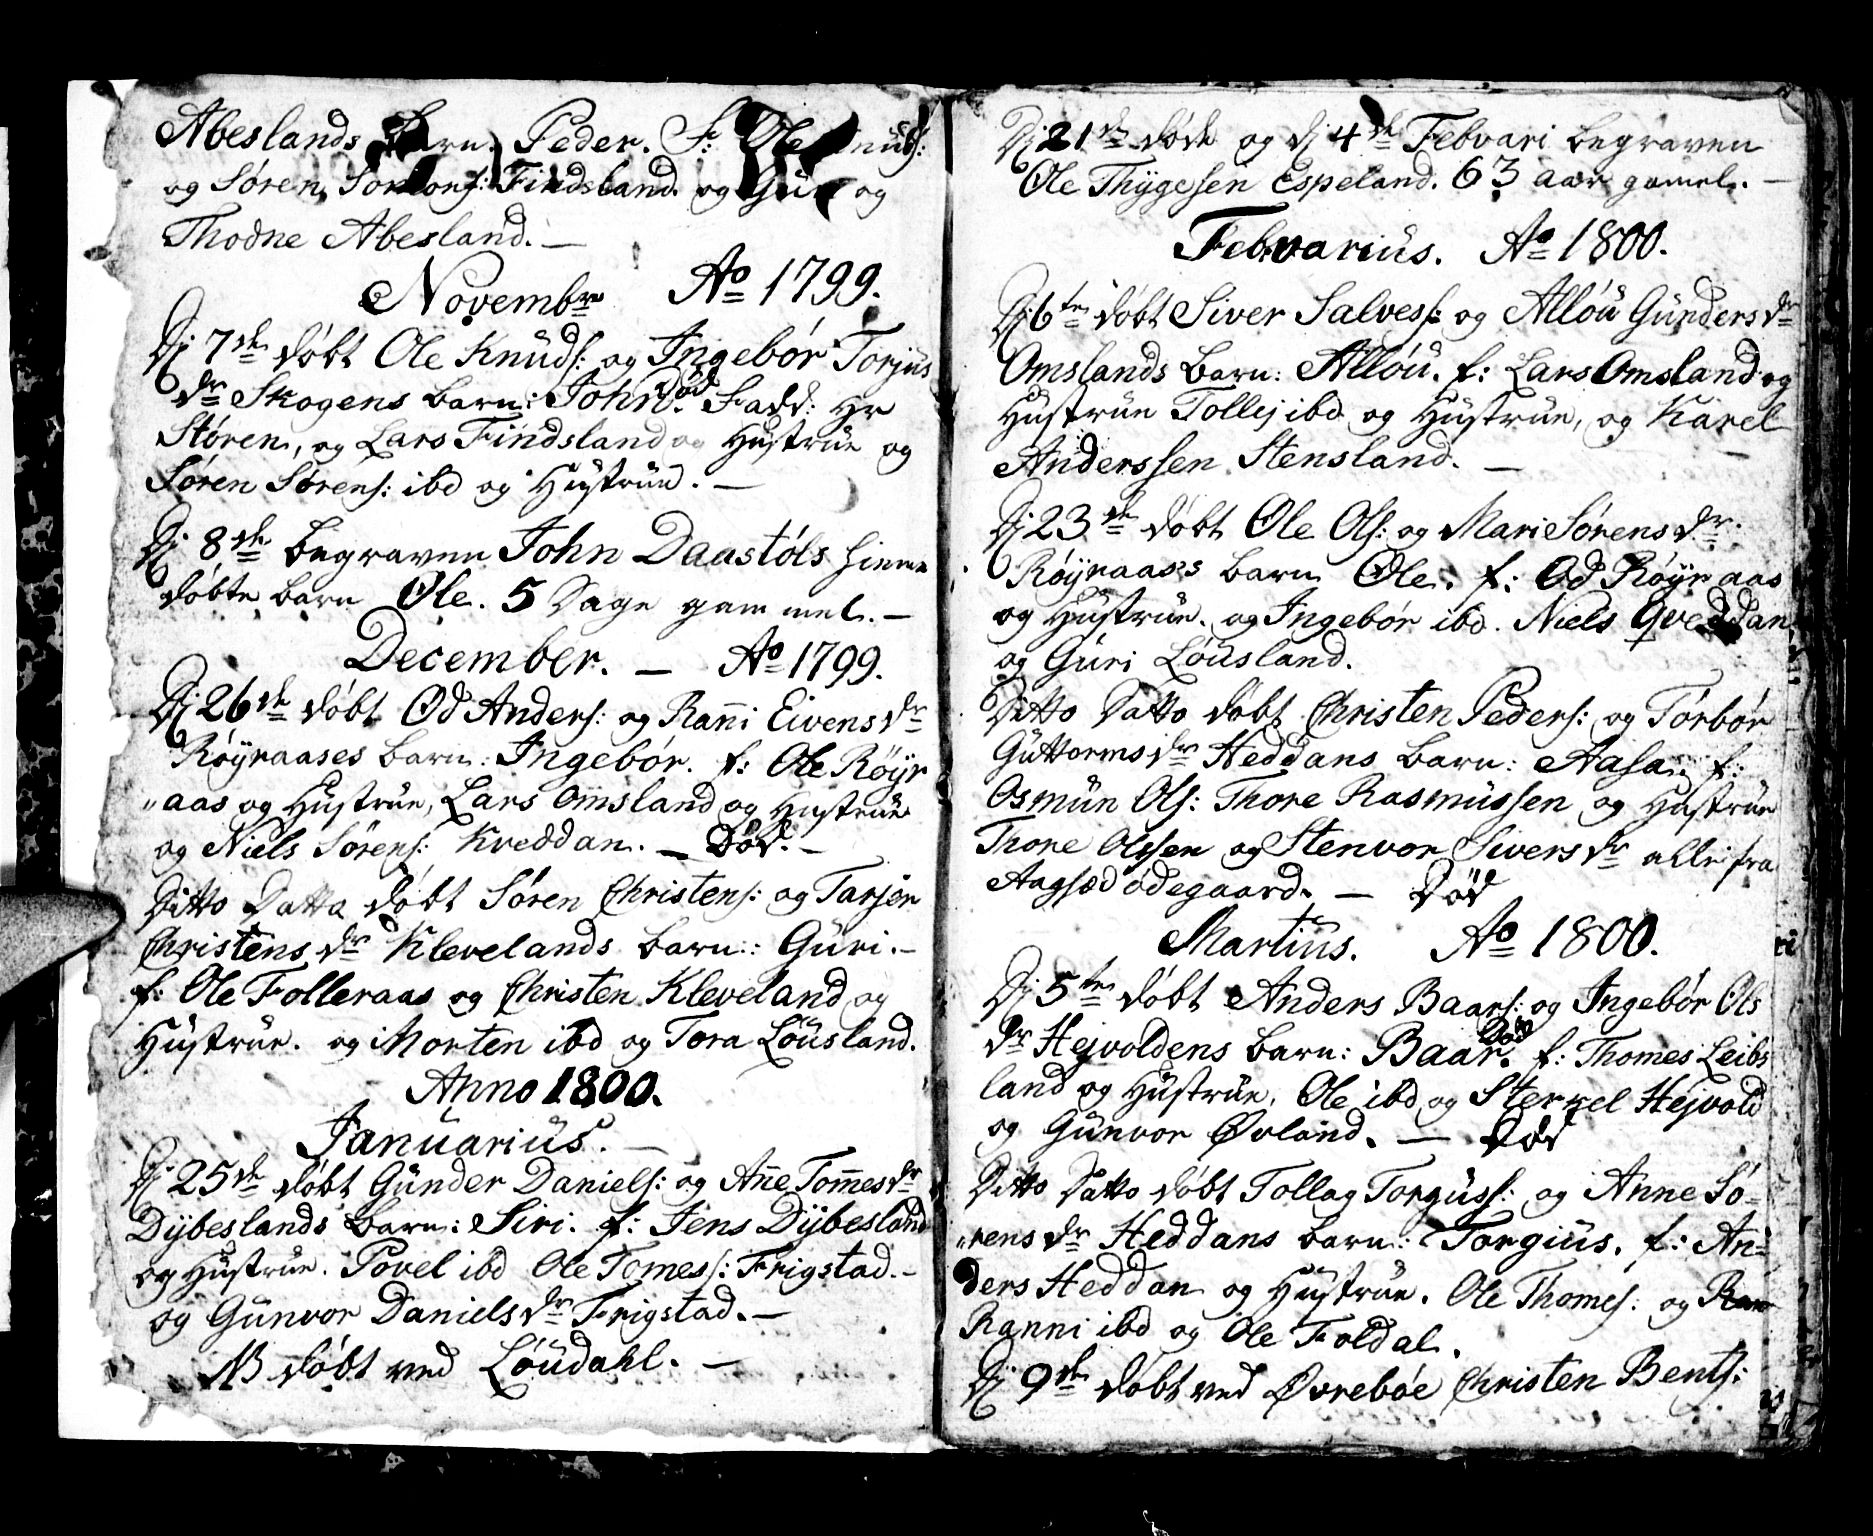 Abeslands barn. Peder. F: Ole Knuds:
og Søren Sørens: Findsland og Guri og
Thodne Abesland. —
Novembr Ao 1799.
Dj 7de døbt Ole Knuds: og Ingebór Torjus
dr Skogens barn: John. Død Fadd: Hr
Støren, og Lars Findsland og Hustrue og
Søren Sørens: ibd og Hustrue. —
Dj 8de begraven John Daastóls hiemme
døbte barn Ole. 5 Dage gammel. —
December. — Ao 1799.
Dj 26de døbt Od Anders: og Ranni Eivens dr
Róÿraases barn: Ingebór. f: Ole Róÿr
„aas og Hustrue, Lars Omsland og Hustrue
og Niels Sørens: Kveddan. — Død. —
Ditto Datto døbt Søren Christens: og Tarjer
Christens dr Klevelands barn: Guri. —
f: Ole Folleraas og Christen Kleveland og
Hustrue. og Morten ibd og Tora Lóusland.
Anno 1800.
Januarius. —
Dj 25de døbt Günder Daniels: og Ane Tomes dr
Dÿbeslands barn: Siri. f: Jens Dÿbesland
og Hustrue. Povel ibd Ole Tomes: Frigstad. —
og Gunvor Daniels dr Frigstad. —
NB døbt ved Lóudahl. —
Dj 21de døde og dj 4de Febvari begraven
Ole Thÿgesen Espeland. 63 aar gamel. —
Febvarius. Ao 1800.
Dj 6te døbt Siver Salves: og Allóu Günders dr
Omslands barn: Allóu. f: Lars Omsland og
Hustrue Tollej ibd og Hustrue, og Karel
Anderssen Stensland. —
Dj 23de døbt Ole Ols: og Mari Sørens dr.
Róÿraases barn Ole. f: Od Róÿraas
og Hustrue. og Ingebór ibd. Niels Qveddan,
og Guri Lóusland.
Ditto Datto døbt Christen Peders: og Tórbór
Guttorms dr Heddans barn: Aasa. f:
Osmün Ols: Thore Rasmüssen og Hustrue
Thore Olssen og Stenvor Sivers dr alle fra
Aagsæd ødegaard. — Død
Martius. Ao 1800.
Dj 5te døbt Anders Baars: og Ingebór Ols
dr Hejvoldens barn: Baar. Død f: Thomes Leibs
land og Hustrue, Ole ibd og Sterkel Hejvold
og Gunvor Øvland. — Død
Ditto Datto døbt Tollag Torgüss: og Anne Sø-
„rens dr Heddans barn: Torgius. f: An-
ders Heddan og Hustrue. Ole Thomes: og
Ranni ibd og Ole Foldal.
Dj 9de døbt ved Øvrebóe Christen Bents: